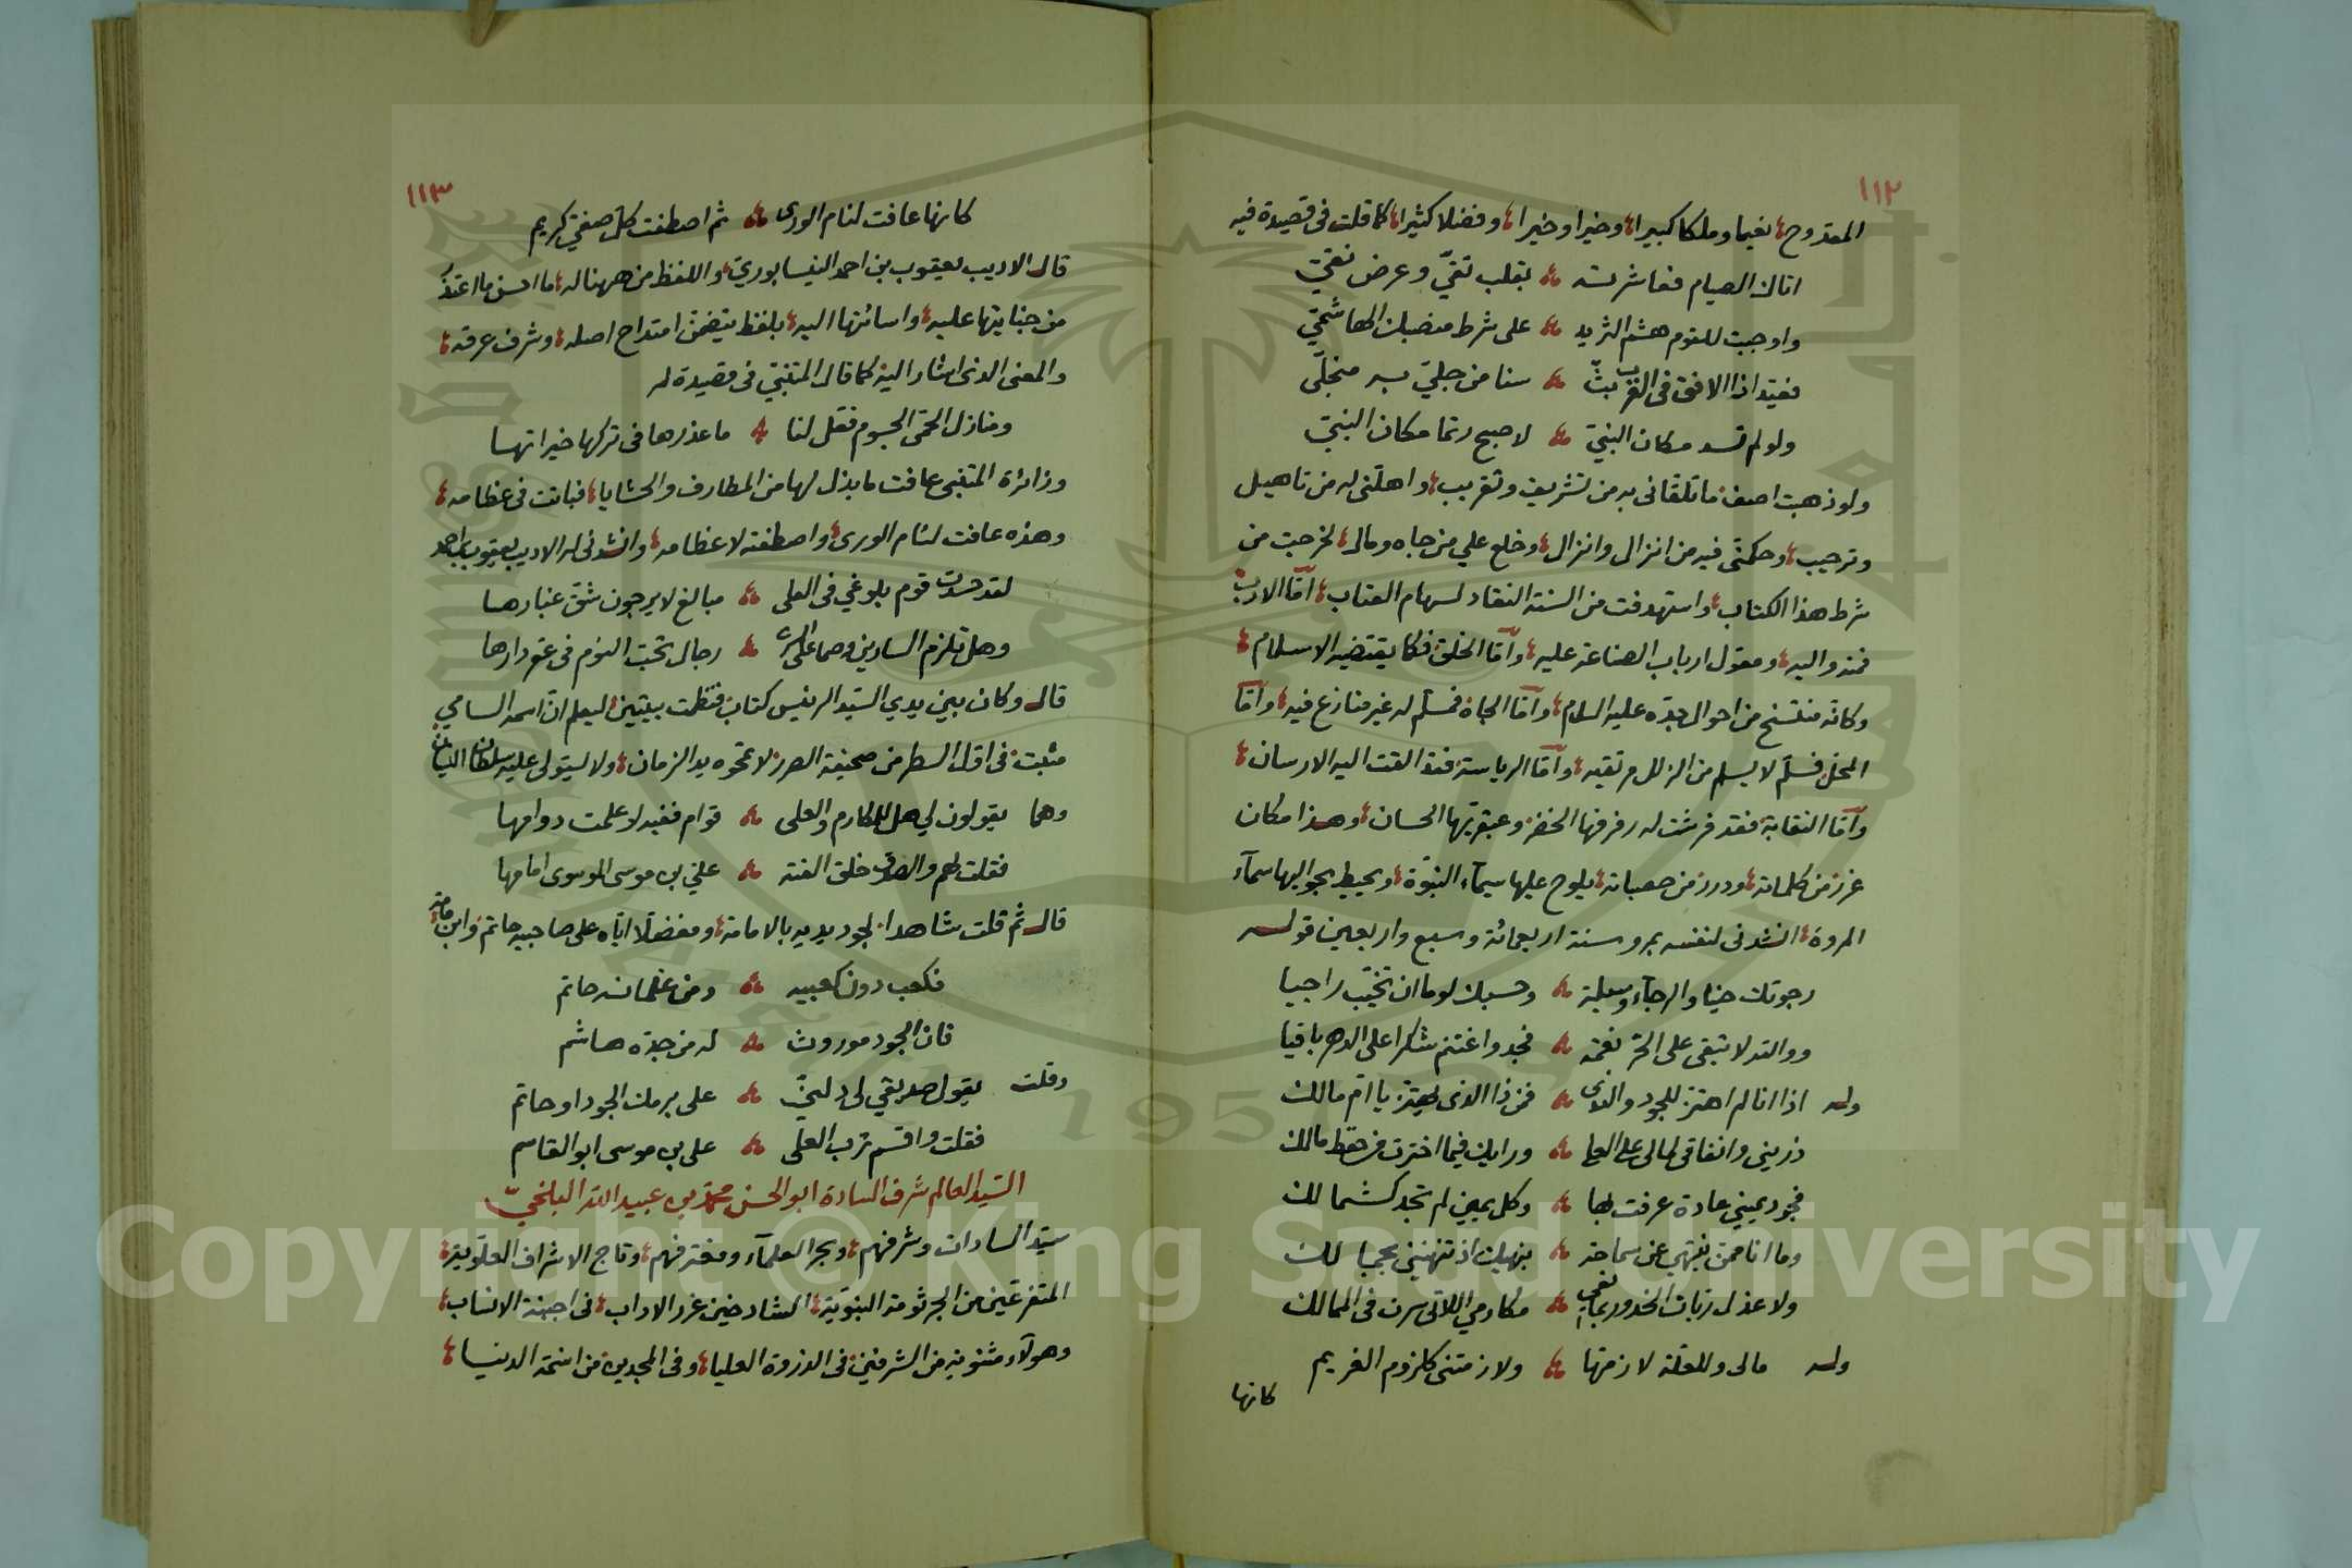 ١١٢
الممدوح نعيما وملكا كبيرا وخيرا وخيرا وفضلا كثيرا كما قلت في قصيدة فيه
اتاك الصيام فعاشرته بقلب تقي وعرض نقي
واوجبت للقوم هشم الثريد على شرط منصبك الهاشمي
فعيد اذا الافق في الغرب بث سنا من جلي به منجلي
ولو لم تسد مكان النبي لاصبح رتما مكان النبي
ولو ذهبت اصف ما تلقاني به من تشريف وتقريب واهلني له من تاهيل
وترحيب وحكمني فيه من انزال وانزال وخلع علي من جاه ومال لخرجت من
شرط هذا الكتاب واستهدفت من السنة النقاد لسهام العتاب اما الادب
فمنه واليه ومعول ارباب الصناعة عليه واما الخلق فكما يقتضيه الاسلام
وكانه منتسخ من احوال جده عليه السلام واما الجاه فمسلم له غير منازع فيه واما
المحل فسلم لا يسلم من الزلل مرتقيه واما الرياسة فقد القت اليه الارسان
واما النقابة فقد فرشت له رفرفها الخضر وعبقريها الحسان وهذا مكان
غرر من كلماته ودرر من حصياته يلوح عليها سيماء النبوة ويحيط بجوانبها سماء
المروة انشدني لنفسه بمرو سنة اربعمائة وسبع واربعين قوله
رجوتك حينا والرجاء وسيلة وحسبك لوما ان تخيب راجيا
ووالله لا تبقى على الحر نعمة فجد واغتنم شكرا على الدهر باقيا
وله اذا انا لم اهتز للجود والندى فمن ذا الذي يهتز يا ام مالك
ذريني وانفاقي لمالي على العلى ورايك فيما اخترت من حفظ مالك
فجود يميني عادة عرفت بها وكل يمين لم تجد كشمالك
وما انا ممن ينتهي عن سماحة بنهيك اذ تنهينني بحجبا لك
ولا عذل ربات الخدور بمانعي مكارمي اللاتي سرن في الممالك
وله مالي وللعلة لازمتها ولازمتني كلزوم الغريم
كانها
١١٣
كانها عافت لئام الورى ثم اصطفت كل صفي كريم
قال الاديب يعقوب بن احمد النيسابوري واللفظ من ههنا له ما احسن ما اعتذر
من جنايتها عليه واسائتها اليه بلفظ يتضمن امتداح اصله وشرف عرقه
والمعنى الذي اشار اليه كما قال المتنبي في قصيدة له
ومنازل الحمى الجسوم فقل لنا ما عذرها في تركها خيراتها
وزائرة المتنبي عافت ما بذل لها من المطارف والحشايا فباتت في عظامه
وهذه عافت لئام الورى واصطفته لاعظامه وانشدني له الاديب يعقوب بن احمد
لقد حسدت قوم بلوغي في العلى مبالغ لا يرجون شق غبارها
وهل تلزم السارين وصما على السرى رجال تحب النوم في عقر دارها
قال وكان بين يدي السيد الرئيس كتاب فنظمت بيتين ليعلم ان اسمه السامي
مثبت في اول السطر من صحيفة الصدر لا تمحوه يد الزمان ولا يستولي عليه سلطان النسيان
وهما يقولون لي هل للمكارم والعلى قوام ففيه لو علمت دوامها
فقلت لهم والصدق خلق الفته علي بن موسى الموسوي امامها
قال ثم قلت شاهدا لجود يديه بالامامة ومفضلا اياه على صاحبيه حاتم وابن مامة
فكعب دون كعبيه ومن غلمانه حاتم
فان الجود موروث له من جده هاشم
وقلت يقول صديقي لي دلني على برمك الجود او حاتم
فقلت واقسم برب العلى علي بن موسى ابو القاسم
السيد العالم شرف السادة ابو الحسن محمد بن عبيد الله البلخي
سيد السادات وشرفهم وبحر العلماء ومغترفهم وتاج الاشراف العلوية
المتفرعين من الجرثومة النبوية الشادخين غرر الاداب في اجبنة الانساب
وهو لآء مثنويه من الشرفين في الذروة العليا وفي المجدين من اسنمة الدنيا
Copyright © King Saud University
1957